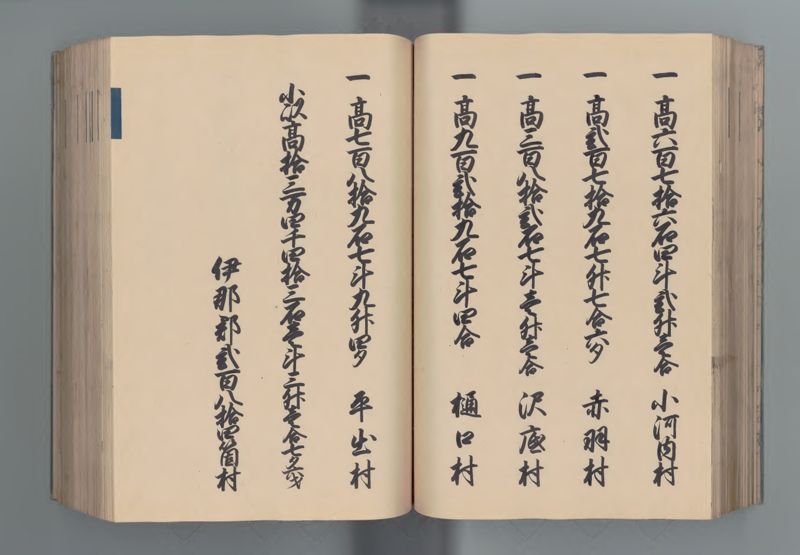 一高六百七拾六石四斗弐升壱合 小河内村
一高弐百七拾九石七升七合六夕 赤羽村
一高三百八拾弐石七斗壱升壱合 沢底村
一高九百弐拾九石七斗四合 樋口村
一高七百八拾九石七斗九升四夕 平出村
小以高拾三万四千四拾三石壱斗三升壱合七夕
伊那郡弐百八拾四箇村